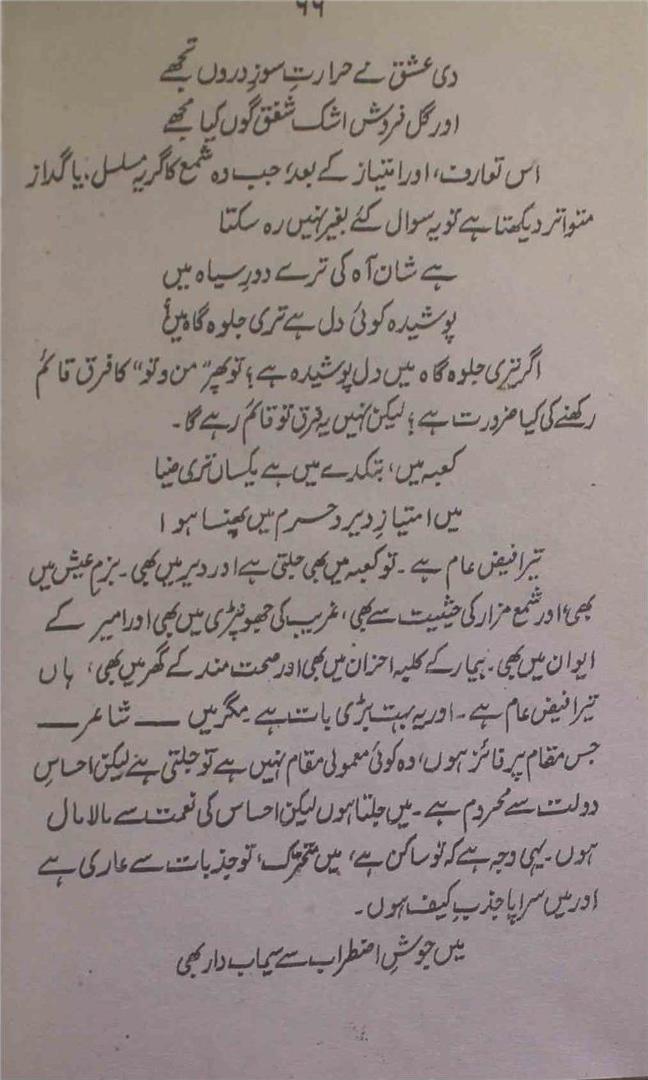 ۶۶
دی عشق نے حرارتِ سوزِ دروں تجھے
اور گل فروش اشک شفق گوں کیا مجھے
اس تعارف، اور امتیاز کے بعد، جب وہ شمع کا گریہ مسلسل، یا گداز
متواتر دیکھتا ہے تو یہ سوال کئے بغیر نہیں رہ سکتا
ہے شان آہ کی ترے دودِ سیاہ میں
پوشیدہ کوئی دل ہے تری جلوہ گاہ میں؟
اگر تیری جلوہ گاہ میں دل پوشیدہ ہے؟ تو پھر "من و تو" کا فرق قائم
رکھنے کی کیا ضرورت ہے؟ لیکن نہیں یہ فرق تو قائم رہے گا۔
کعبہ میں، بتکدے میں ہے یکساں تری ضیا
میں امتیازِ دیر و حرم میں پھنسا ہوا
تیرا فیض عام ہے۔ تو کعبہ میں بھی جلتی ہے اور دیر میں بھی۔ بزمِ عیش میں
بھی، اور شمع مزار کی حیثیت سے بھی، غریب کی جھونپڑی میں بھی اور امیر کے
ایوان میں بھی۔ بیمار کے کلبہ احزان میں بھی اور صحت مند کے گھر میں بھی، ہاں
تیرا فیض عام ہے۔ اور یہ بہت بڑی بات ہے مگر میں — شاعر —
جس مقام پر فائز ہوں، وہ کوئی معمولی مقام نہیں ہے تو جلتی ہے لیکن احساسِ
دولت سے محروم ہے۔ میں جلتا ہوں لیکن احساس کی نعمت سے مالا مال
ہوں۔ یہی وجہ ہے کہ تو ساکن ہے، میں متحرک، تو جذبات سے عاری ہے
اور میں سراپا جذبِ کیف ہوں۔
میں جوشِ اضطراب سے سیماب وار بھی